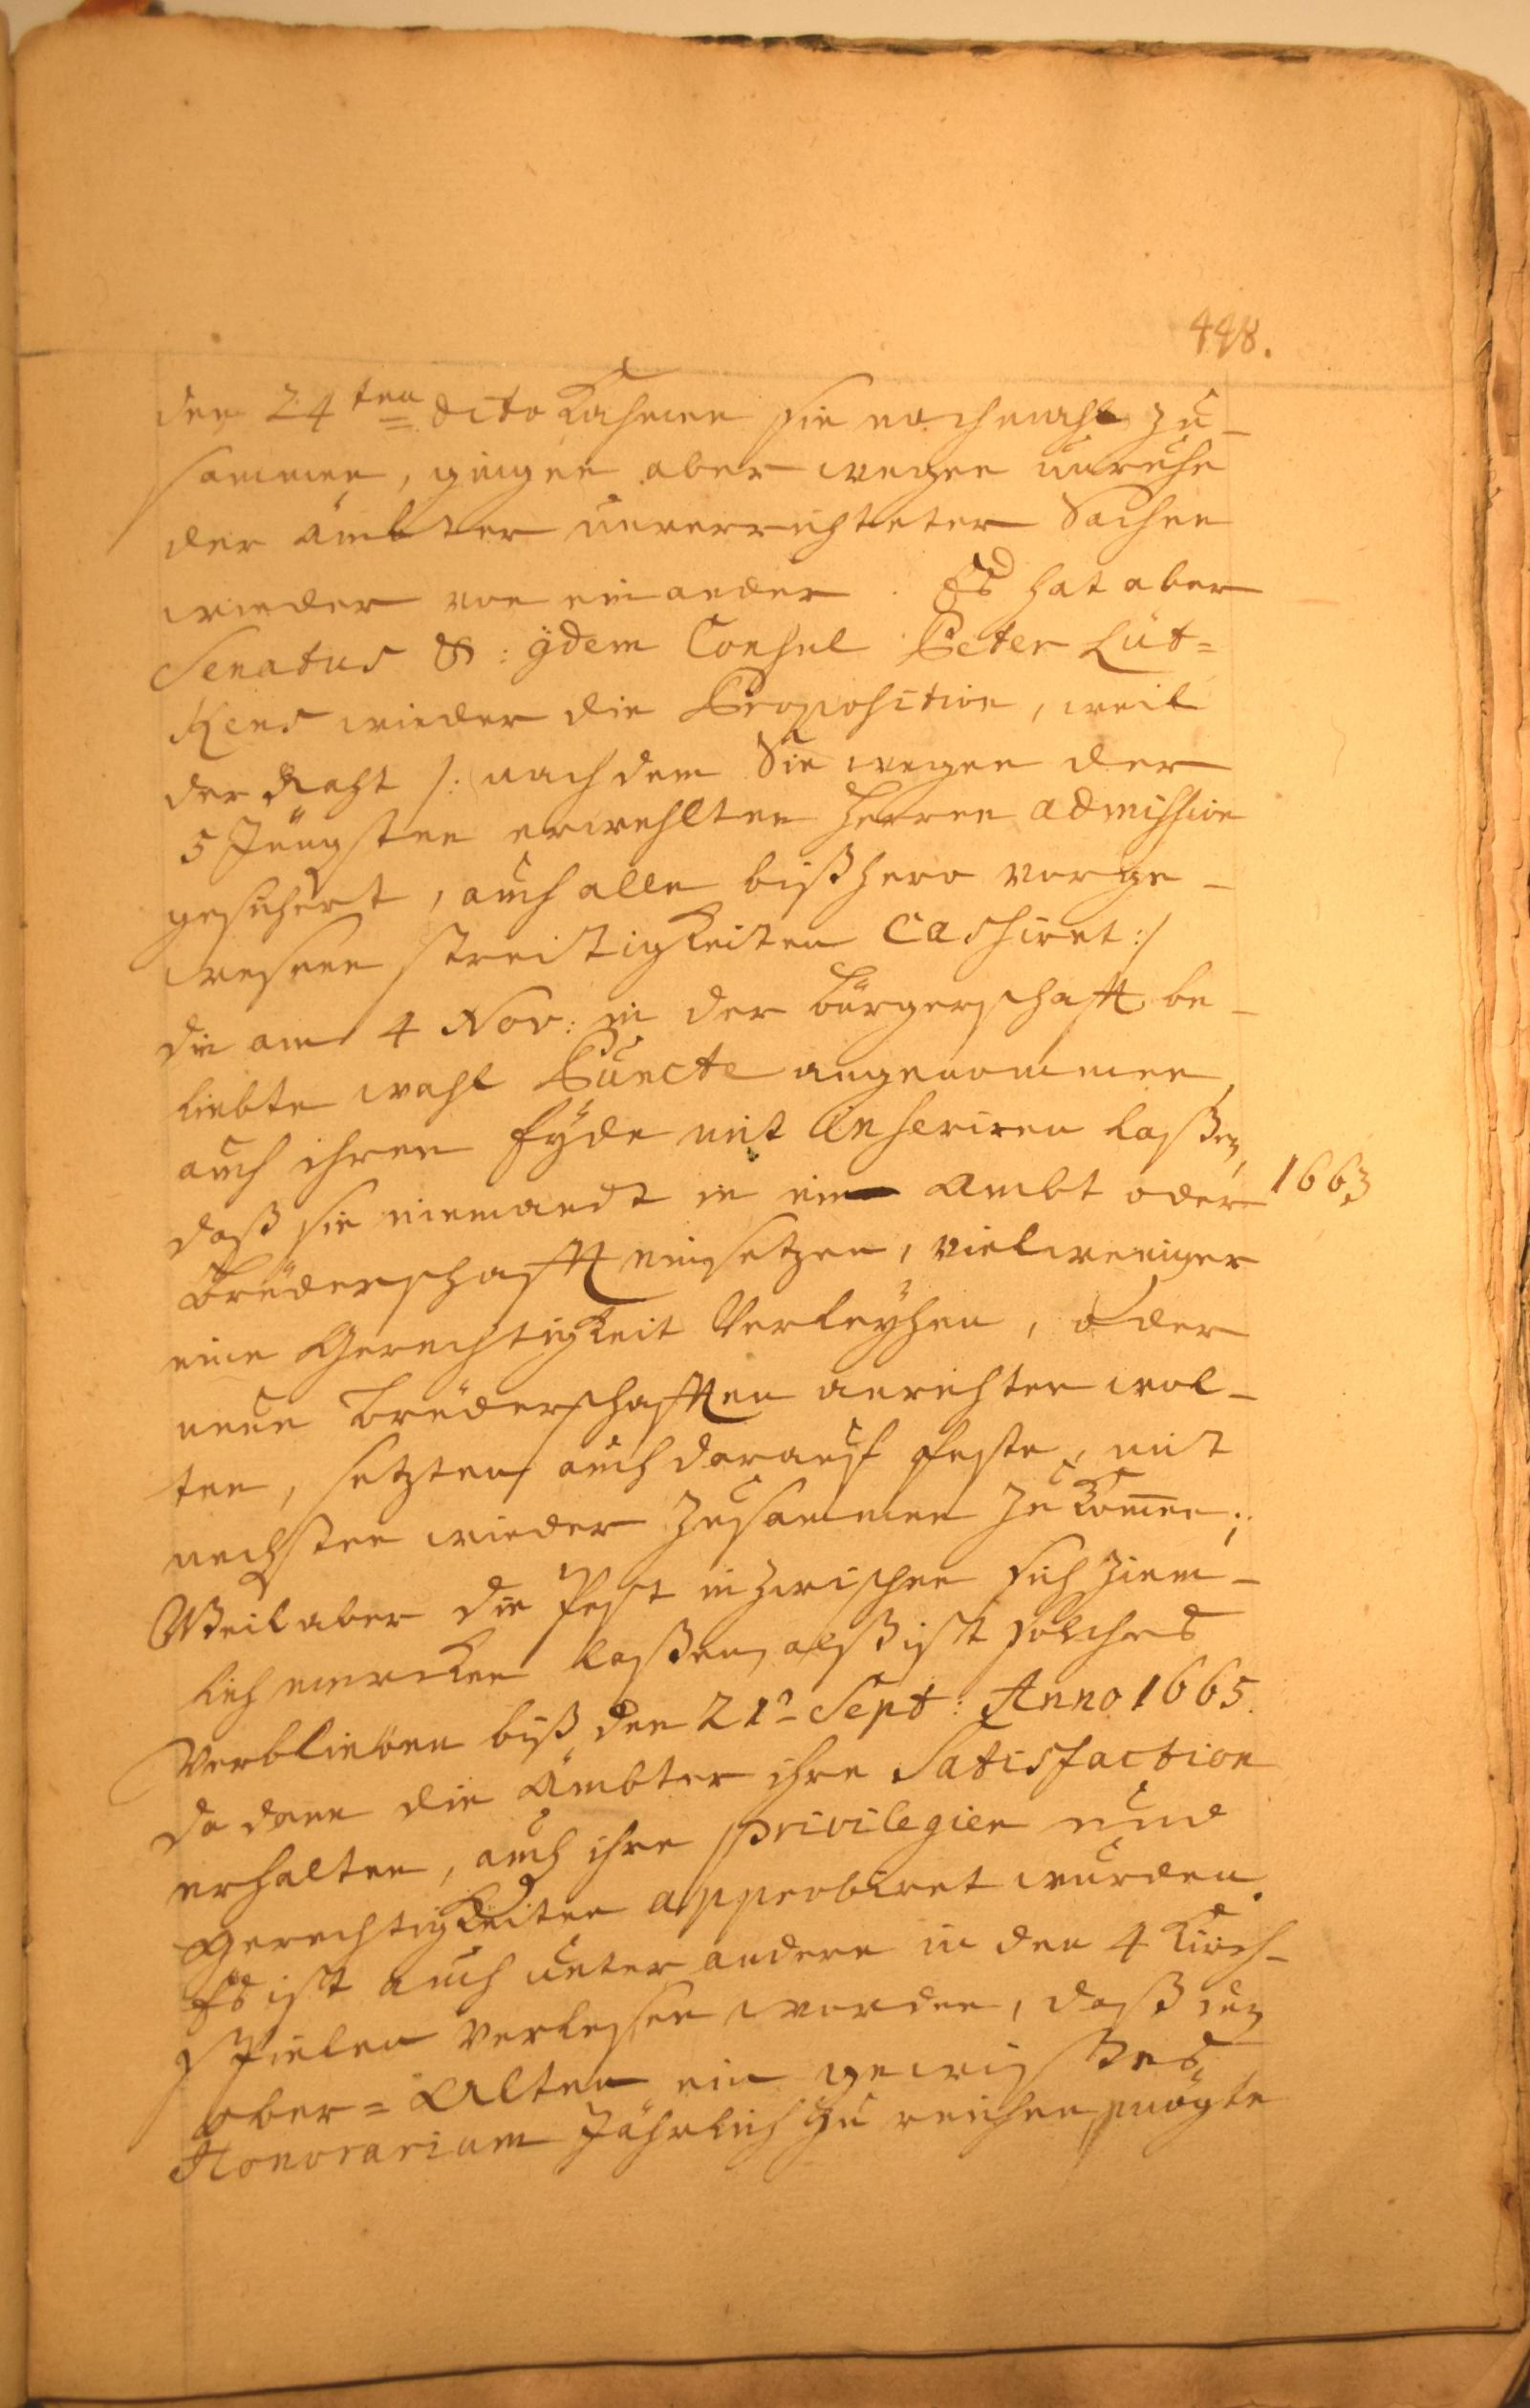 448.
den 24ten dito Kahmen sie nochmahl zu-
sammen, gingen aber wegen unruhe
der ämbter unverrichteter Sachen
wieder von einander. Es hat aber
Senatus &: Consul Peter Lüt=
Kens wieder die Proposition, weil
der Raht /: nachdem Sie wegen der
5 Jüngsten erwehlten Herren admission
gesichert, auch alle bißhero vorge-
wesenen streitigkeiten Cashiret :/
die am 4 Nov: in der bürgerschafft be-
liebte wahl Puncte angenommen,
auch ihren Eyde mit Anseriren laßen,
daß sie niemandt in ein ambt oder
1663
Brüderschafft einsetzen, vielweniger
eine Gerechtigkeit Verleyhen, oder
neue Brüderschafften anrichten wol-
ten, setzten auch darauf feste, mit
nechsten wieder zusammen zu Komen;
Weil aber die Pest inzwischen sich ziem-
lich mercken laßen, alß ist solches
Verblieben biß den 21 Sept: Anno 1665.
da dann die Ämbter ihre Satisfaction
erhalten, auch ihre privilegien und
Gerechtigkeiten approbiret wurden.
Es ist auch unter andern in den 4 Kirch-
spielen Verlesen worden, daß den
ober=Alten ein gewißes
Honorarium Jährlich zu reichen mögte